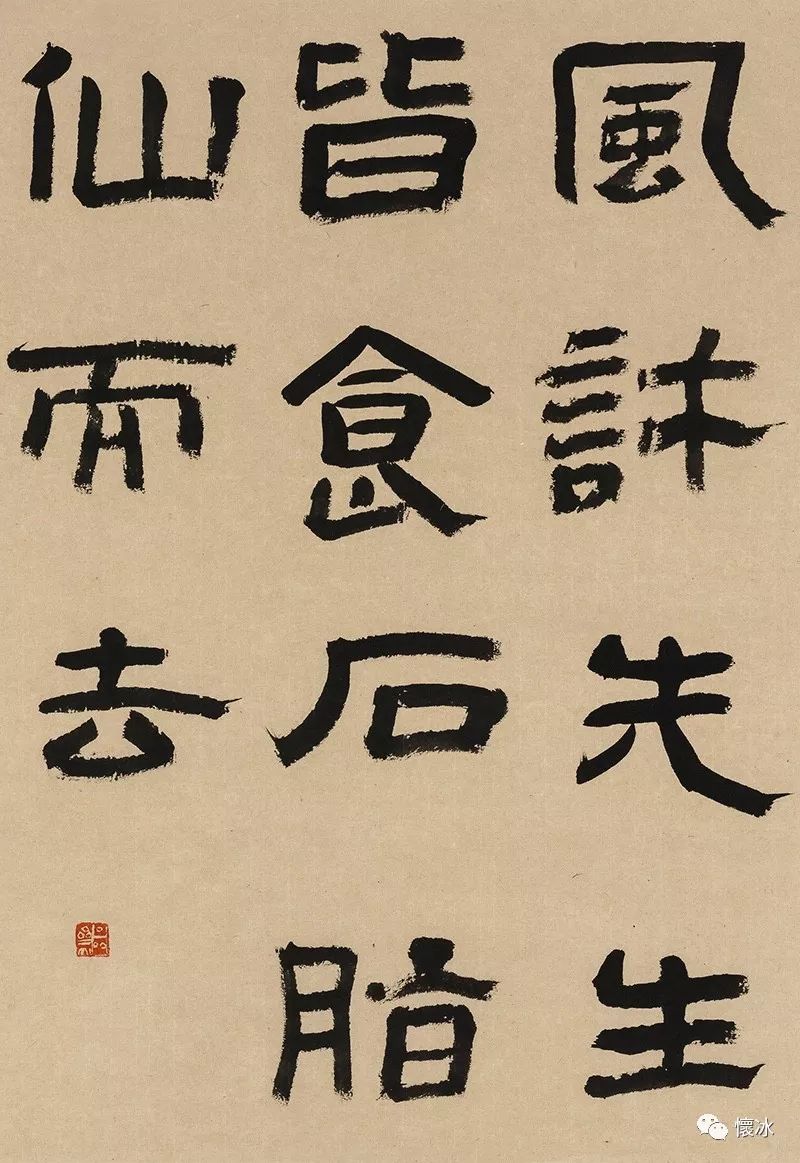 風許先生
皆食石脂
仙而去
懷冰